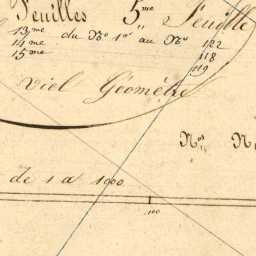 Feuilles 5me Feuille
13me du No 1er au No 122
14me 118
15me 119
Viel Géomètre
Nos
de 1 a 1000
100